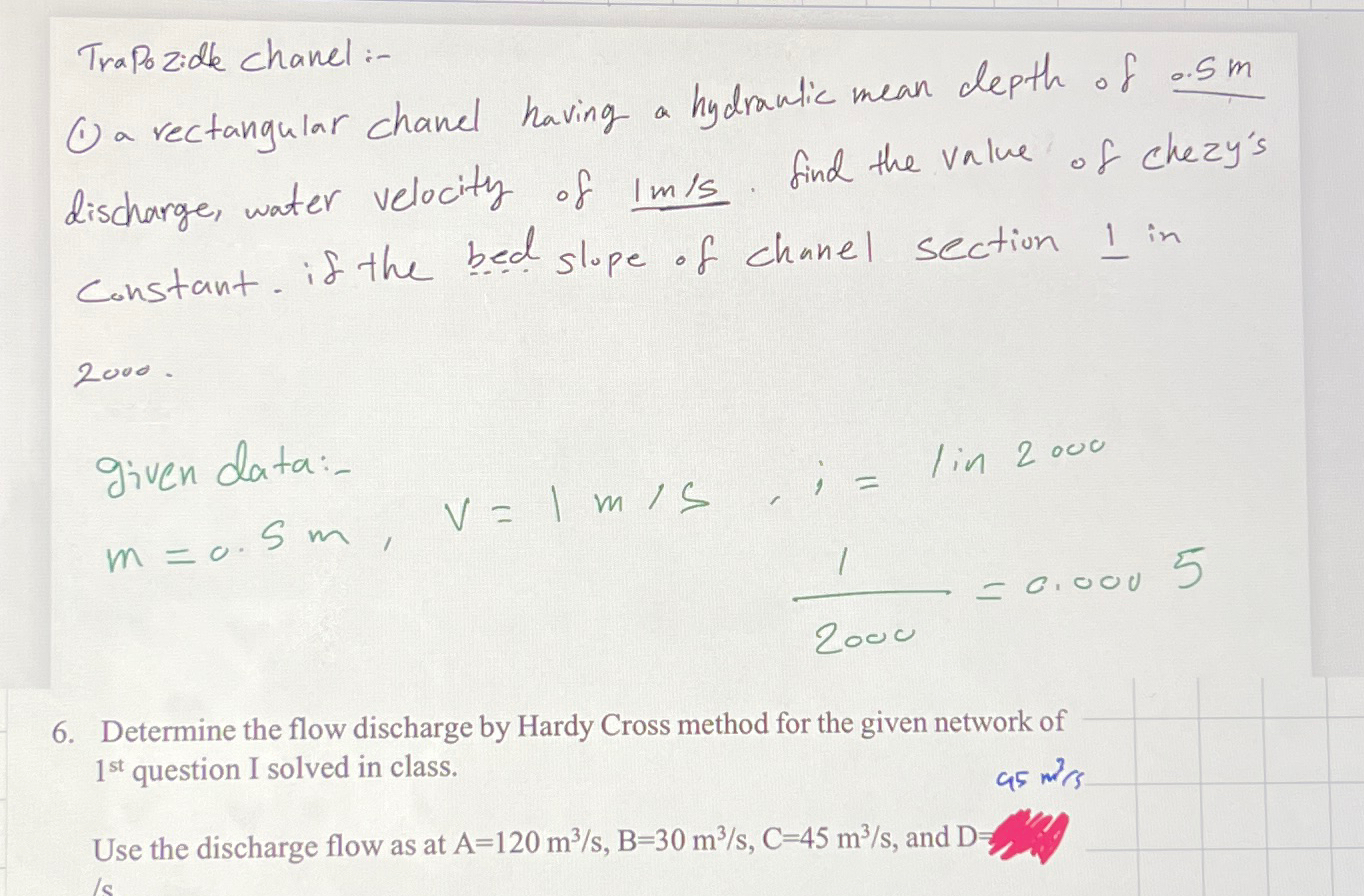 TraPozidle chanel :-
① a rectangular chanel having a hydraulic mean depth of 0.5 m
discharge, water velocity of 1m/s . find the value of chezy's
Constant . if the bed slope of chanel section 1 in
2000 .
given data:-
m = 0.5 m , V = 1 m/s , i = 1 in 2000
1/2000 = 0.0005
6. Determine the flow discharge by Hardy Cross method for the given network of
1st question I solved in class.
45 m³/s
Use the discharge flow as at A=120 m³/s, B=30 m³/s, C=45 m³/s, and D=
/s